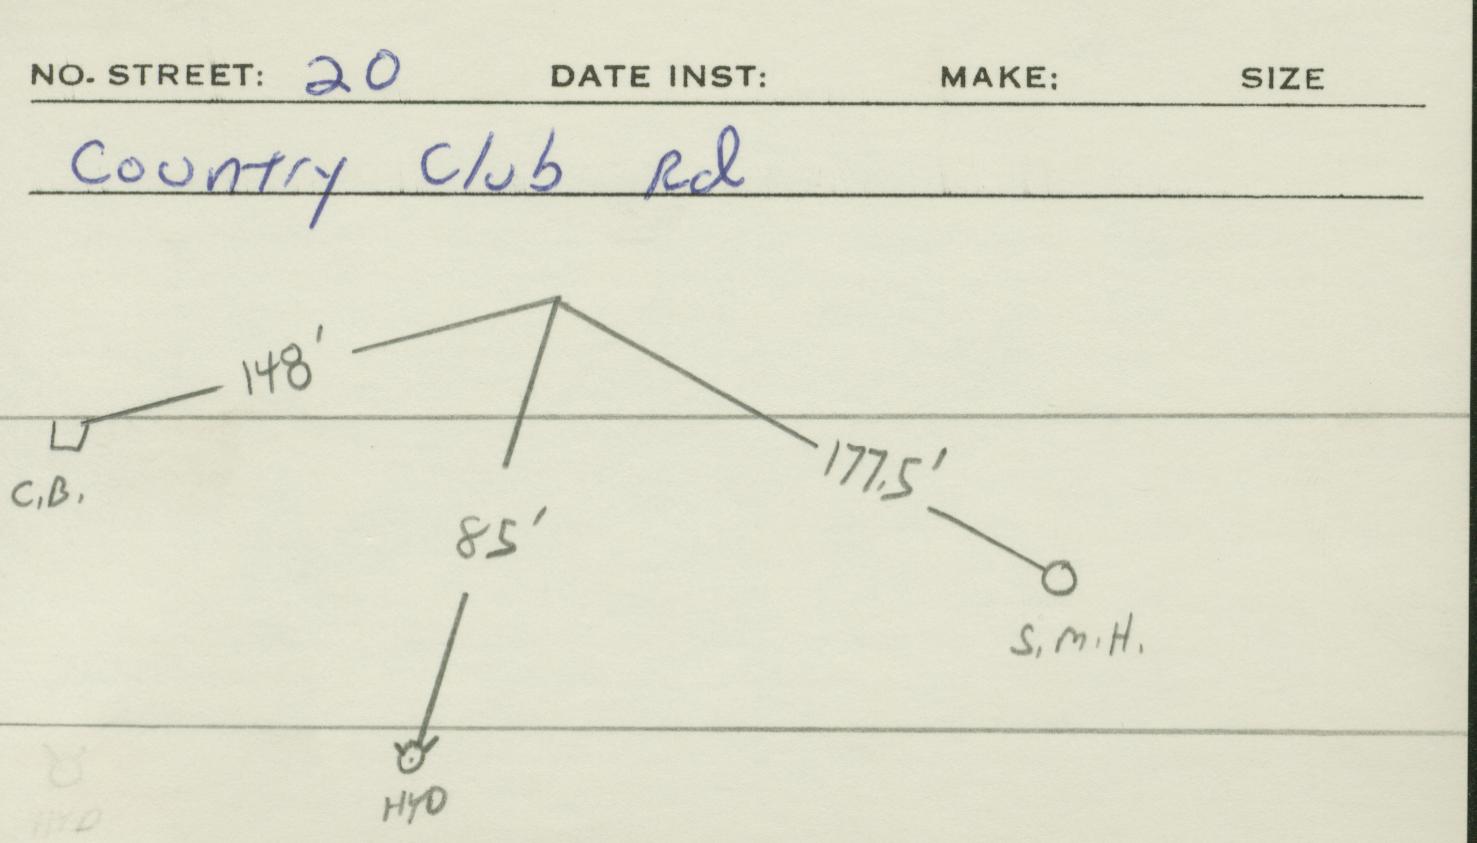 NO. STREET: 20 DATE INST: MAKE: SIZE
Country Club Rd
148'
177.5'
C.B.
85'
S.M.H.
HYD
HYD